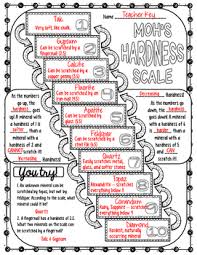 Name Teacher Key
MOH'S
HARDNESS
SCALE
Talc
Very soft, like chalk.
1
Gypsum
Can be scratched by
a fingernail (2.5)
2
Calcite
Can be scratched by
a copper penny (3.5)
3
Fluorite
Can be scratched by an
iron nail
4
Apatite
Can be scratched by
5
Feldspar
Can be scratched by a
steel file (6.5)
6
Quartz
Easily scratches
metal, glass,
7
Topaz
scratches
everything below it
8
Corundum
scratches
everything below it
9
Diamond
10
As the numbers
go up, the
hardness
goes up! A mineral
with a hardness of
harder than a
mineral with a
hardness of 2
CANNOT
scratch it!
Increasing Hardness!
As the numbers
go down, the
hardness
down. A mineral
with a hardness of
softer than a
mineral with a
hardness of
CAN
scratch it!
Decreasing Hardness!
You try!
1. An unknown mineral can be
scratched by topaz, but not by
feldspar. According to the scale, what
mineral could it be?
Quartz
2. A fingernail has a hardness of 2.5.
What two minerals could be scratched
by your fingernail?
Talc & Gypsum